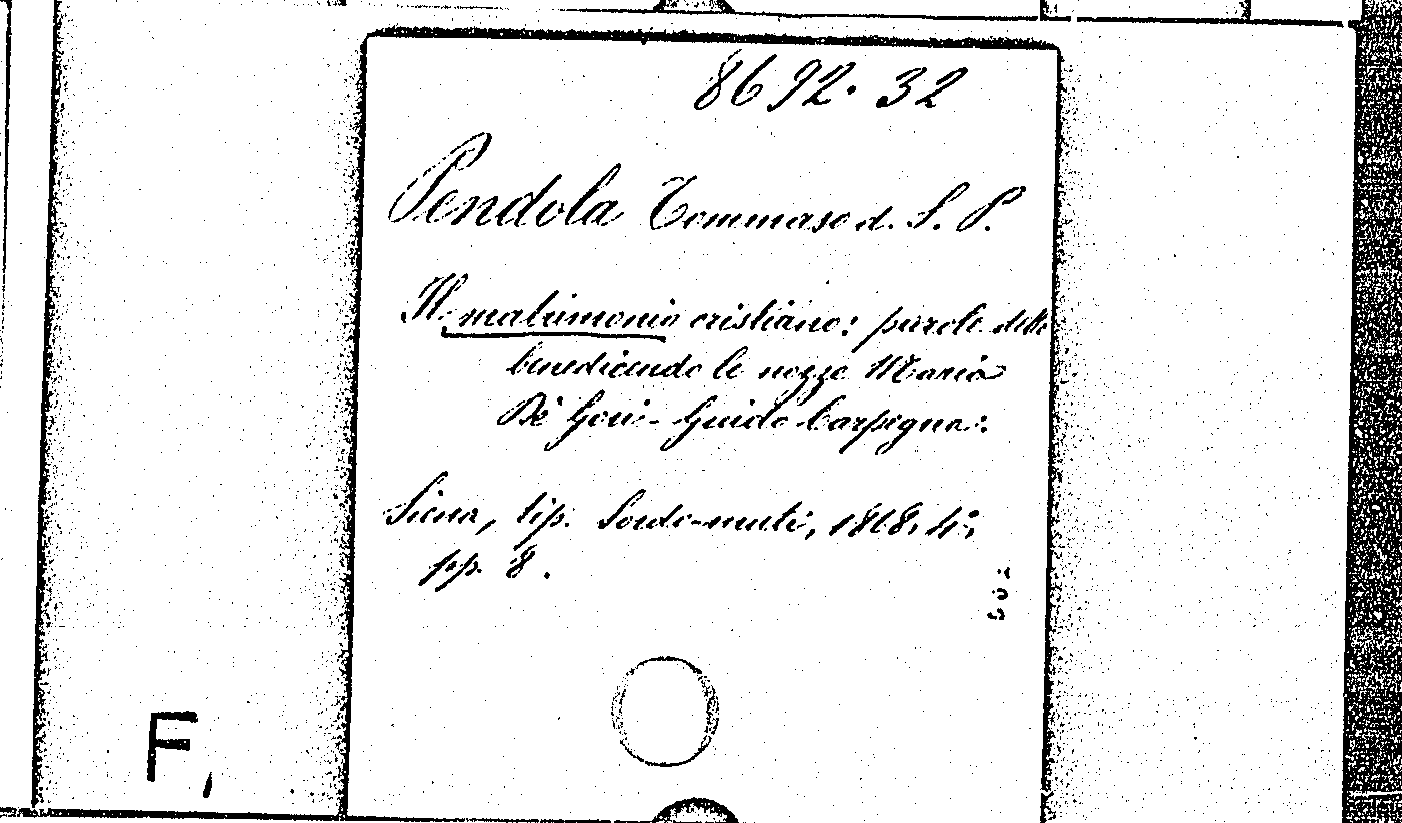 8692. 32
Pendola Tommaso d. S. P.
Il matrimonio cristiano: parole dette
benedicendo le nozze Maria
De' Gori - Guido Carpegna:
Siena, tip. Sordo-muti, 1868, 4°,
pp. 8.
F,